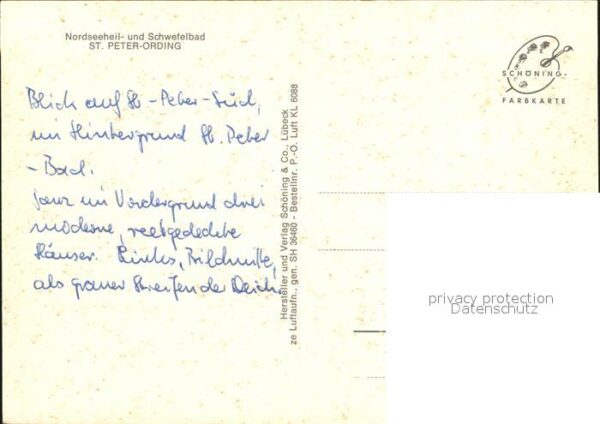 Nordseeheil- und Schwefelbad
ST. PETER-ORDING
SCHÖNING-
FARBKARTE
Blick auf St-Peter-Süd,
im Hintergrund St. Peter
-Bad.
Ganz im Vordergrund drei
moderne, reetgedeckte
Häuser. Links, Bildmitte,
als grauer Streifen der Deich.
Hersteller und Verlag Schöning & Co., Lübeck
ze Luftaufn., gen. SH 36460 - Bestellnr. P.-O. Luft KL 6088
privacy protection
Datenschutz